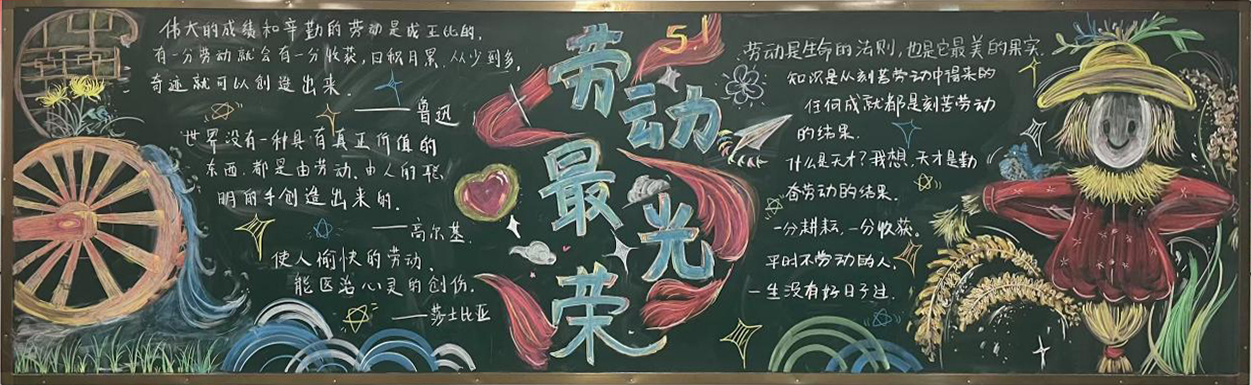 伟大的成绩和辛勤的劳动是成正比的,
有一分劳动就会有一分收获,日积月累,从少到多,
奇迹就可以创造出来.
——鲁迅
世界没有一种具有真正价值的
东西,都是由劳动、由人的聪
明的手创造出来的.
——高尔基.
使人愉快的劳动、
能医治心灵的创伤.
——莎士比亚
5.1
劳动
最光
荣
劳动是生命的法则,也是它最美的果实.
知识是从刻苦劳动中得来的
任何成就都是刻苦劳动
的结果.
什么是天才?我想,天才是勤
奋劳动的结果.
一分耕耘,一分收获。
平时不劳动的人,
一生没有好日子过.